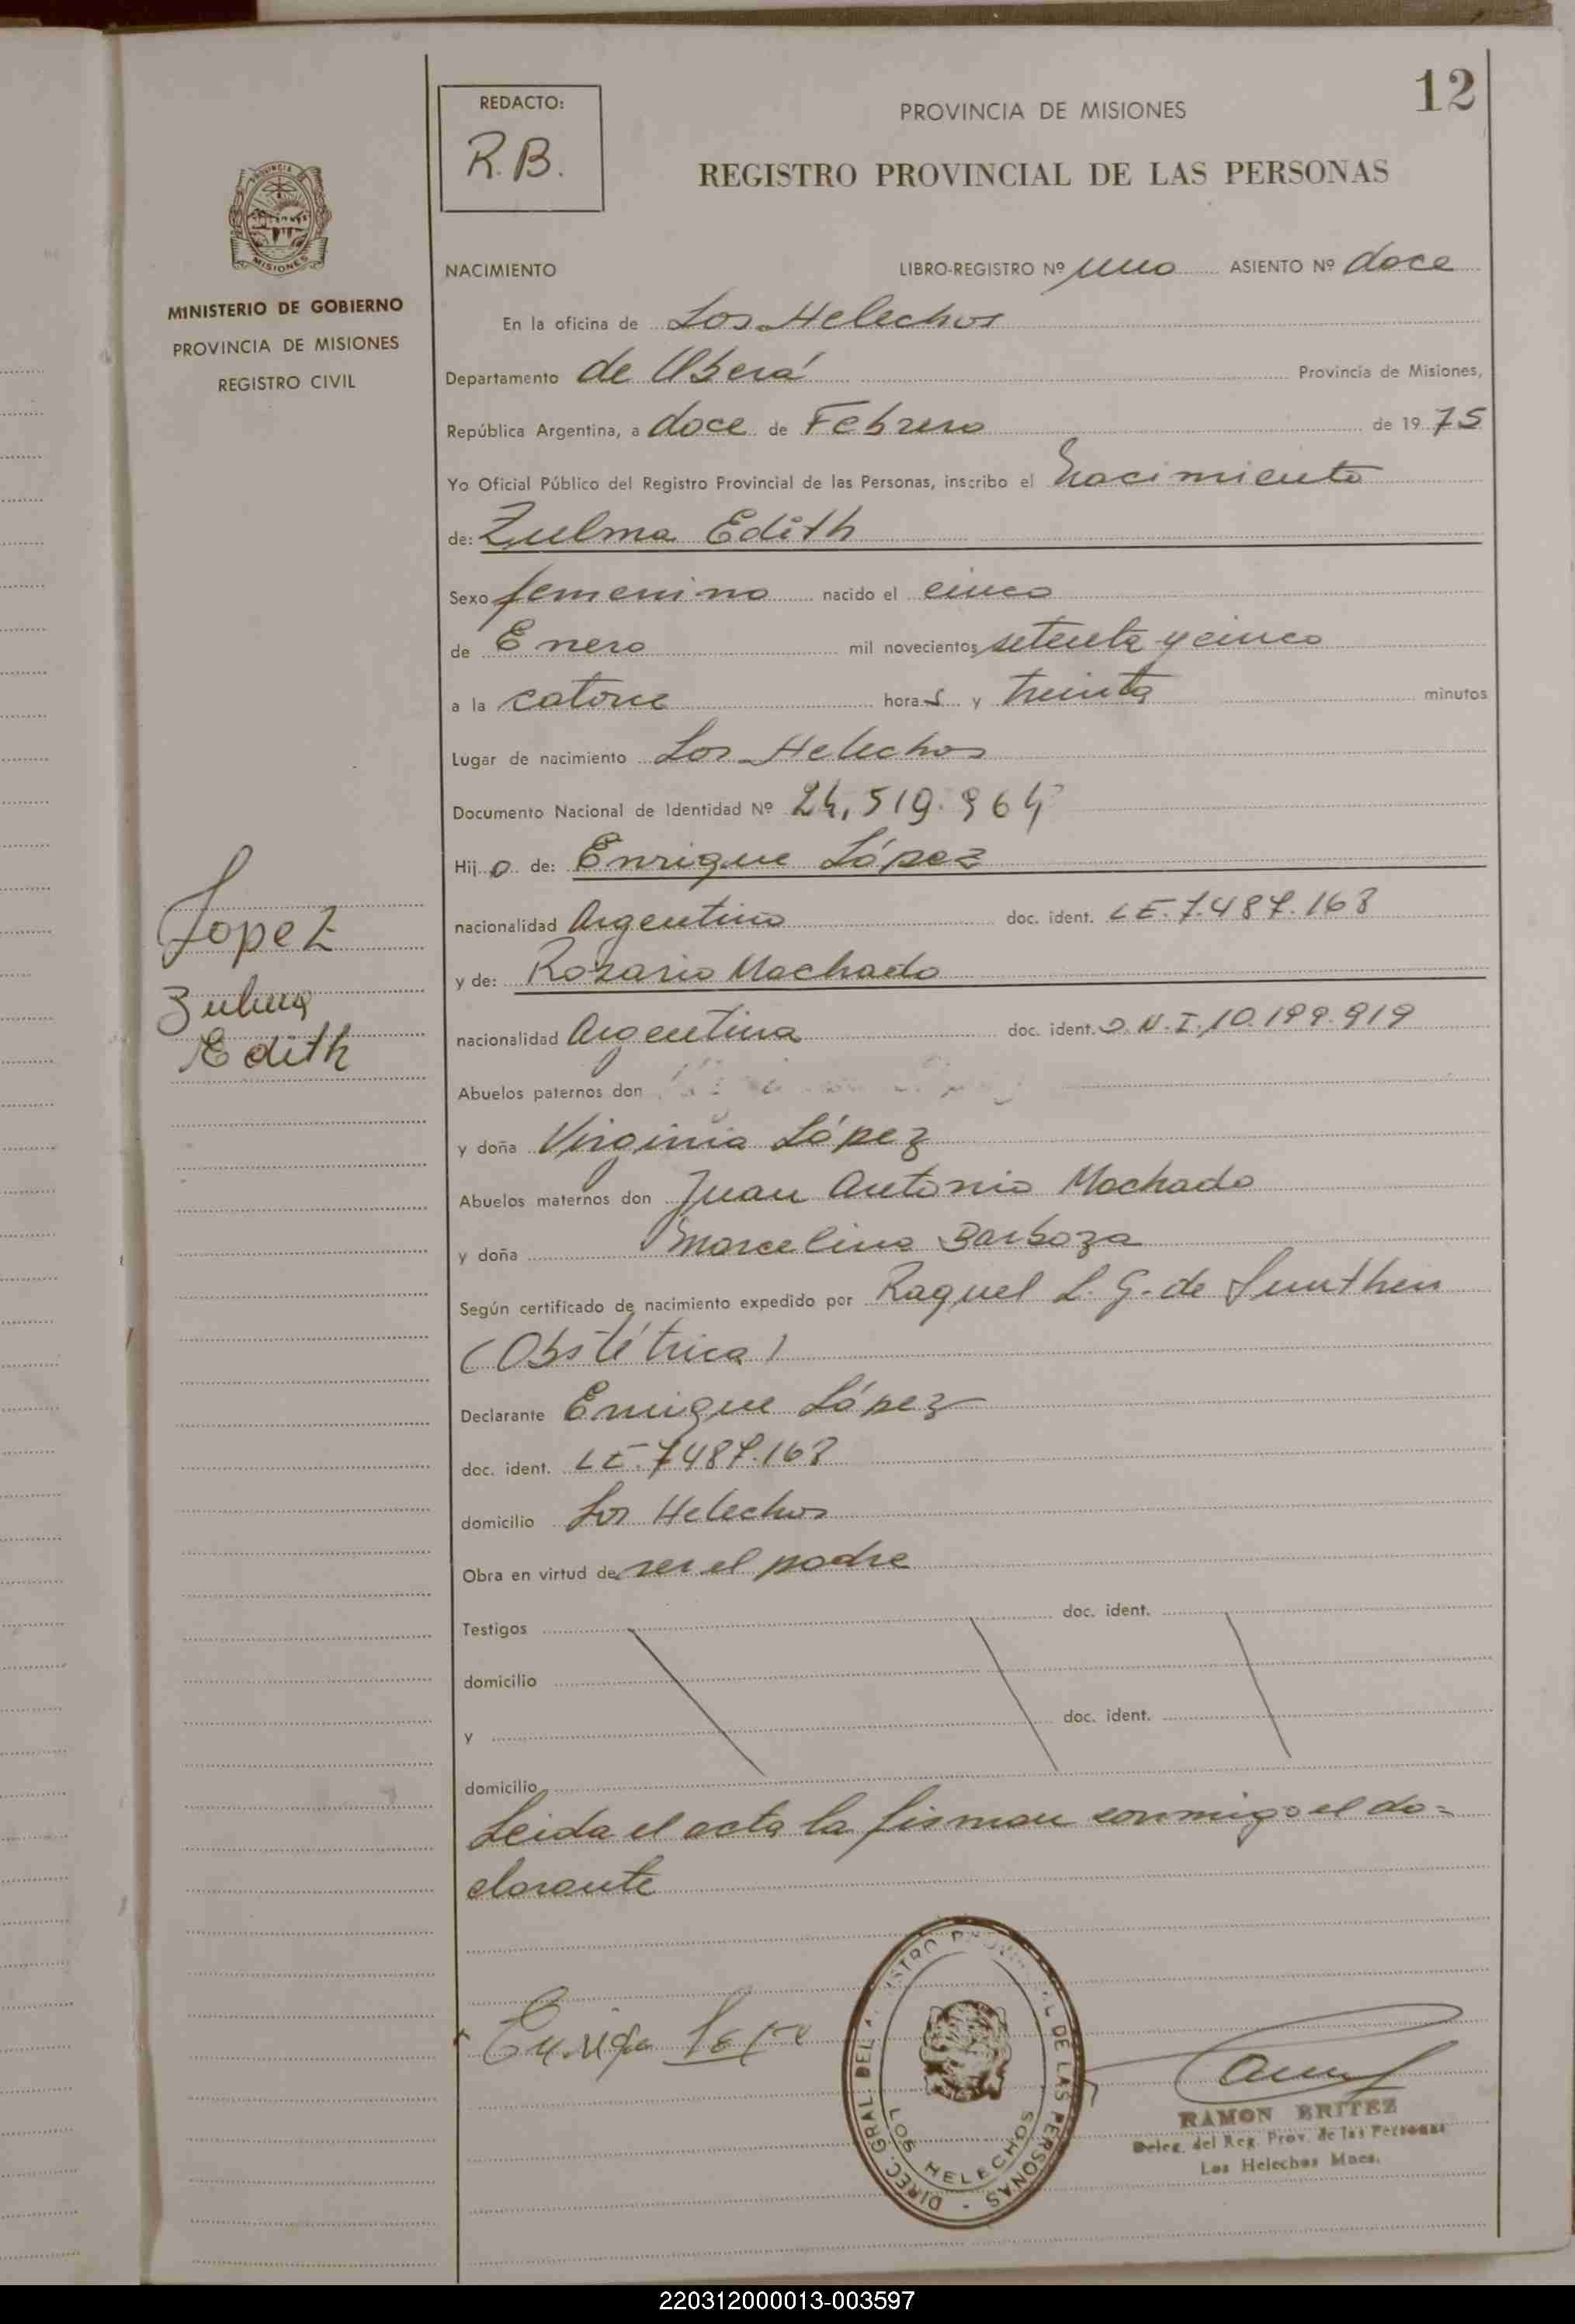 12
REDACTO:
R.B.
PROVINCIA DE MISIONES
REGISTRO PROVINCIAL DE LAS PERSONAS
MISIONES
MINISTERIO DE GOBIERNO
PROVINCIA DE MISIONES
REGISTRO CIVIL
NACIMIENTO LIBRO-REGISTRO Nº uno ASIENTO Nº doce
En la oficina de Los Helechos
Departamento de Oberá Provincia de Misiones,
República Argentina, a doce de Febrero de 19 75
Yo Oficial Público del Registro Provincial de las Personas, inscribo el nacimiento
de: Zulma Edith
Sexo femenino nacido el cinco
de Enero mil novecientos setenta y cinco
a la catorce hora s y treinta minutos
Lugar de nacimiento Los Helechos
Documento Nacional de Identidad Nº 24.519.964
Hij o de: Enrique López
nacionalidad Argentino doc. ident. LE. 7.487.168
y de: Rosario Machado
nacionalidad Argentina doc. ident. D.N.I. 10.199.919
Lopez
Zulma
Edith
Abuelos paternos don
y doña Virginia López
Abuelos maternos don Juan Antonio Machado
y doña Marcelina Barboza
Según certificado de nacimiento expedido por Raquel L. G. de
(Obstétrica)
Declarante Enrique López
doc. ident. LE. 7487.168
domicilio Los Helechos
Obra en virtud de ser el padre
Testigos doc. ident.
domicilio
y doc. ident.
domicilio
Leida el acta la firman conmigo el de=
clarante
DIREC. GRAL. DEL DE LAS PERSONAS
LOS HELECHOS
RAMON BRITEZ
Deleg. del Reg. Prov. de las Personas
Los Helechos Mnes.
220312000013-003597